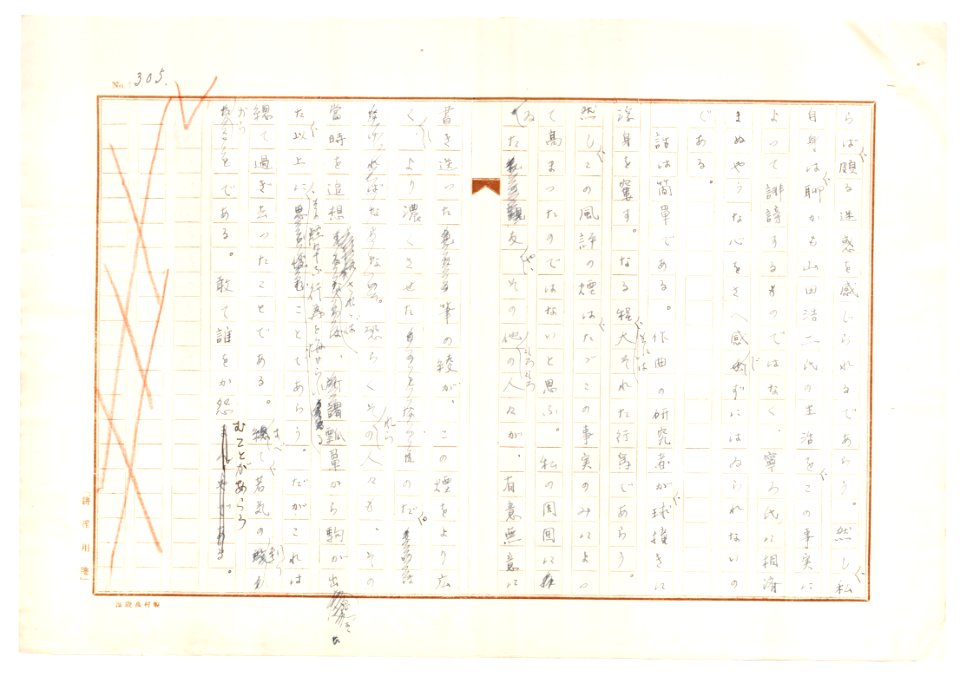 No. 305.
らば頗る迷惑を感じられるであらう。然し私
自身は聊かも山田浩二氏の生活をこの事実に
よって誹謗するものではなく、寧ろ氏に相済
まぬやうな心をさへ感ぜずにはゐられないの
である。
話は簡単である。作曲の研究者が球撞きに
浮身を窶す。なる程大それた行為であらう。
然しこの風評の煙はたゞこの事実のみによつ
て高まつたのではないと思ふ。私の周囲に
ゐた親友やその他の人々が、有意無意に
書き送つた筆の綾が、この煙をより広
く、より濃くさせた
ればならない。恐らくその人々も、その
当時を追想 所謂瓢箪から駒が出
た以上に ことであらう。だがこれは
総て過ぎ去つたことである。 総て若気の
である。敢て誰をか怨むことがあらう。